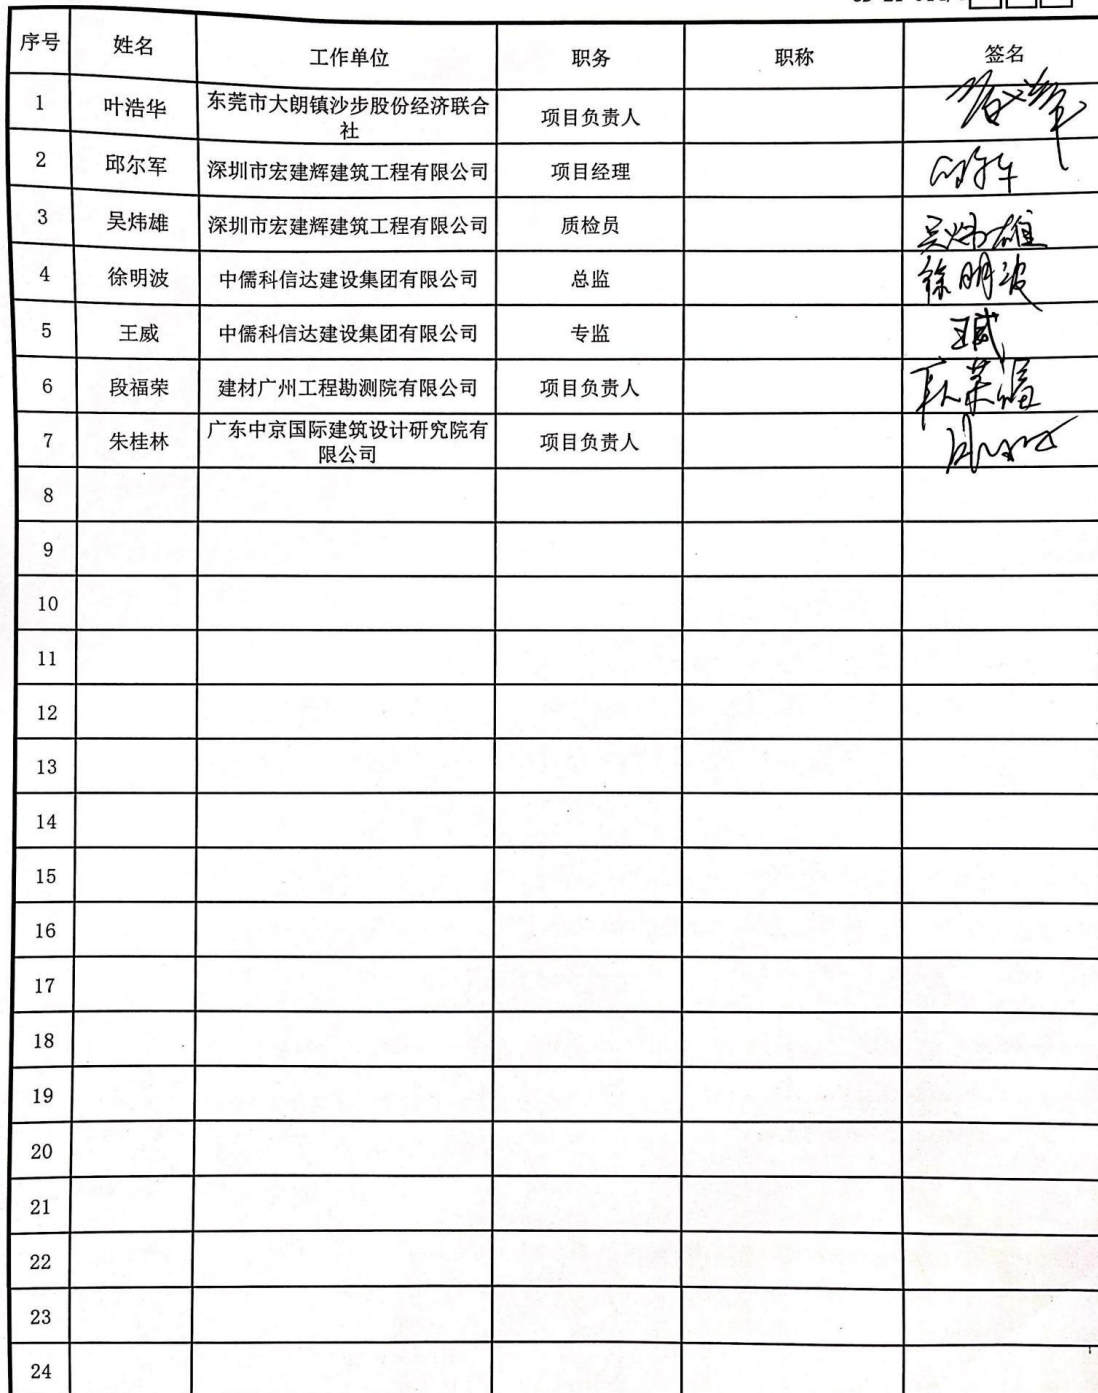 序号 姓名 工作单位 职务 职称 签名
1 叶浩华 东莞市大朗镇沙步股份经济联合
社 项目负责人
2 邱尔军 深圳市宏建辉建筑工程有限公司 项目经理 邱尔军
3 吴炜雄 深圳市宏建辉建筑工程有限公司 质检员 吴炜雄
4 徐明波 中儒科信达建设集团有限公司 总监 徐明波
5 王威 中儒科信达建设集团有限公司 专监 王威
6 段福荣 建材广州工程勘测院有限公司 项目负责人
7 朱桂林 广东中京国际建筑设计研究院有
限公司 项目负责人
8
9
10
11
12
13
14
15
16
17
18
19
20
21
22
23
24